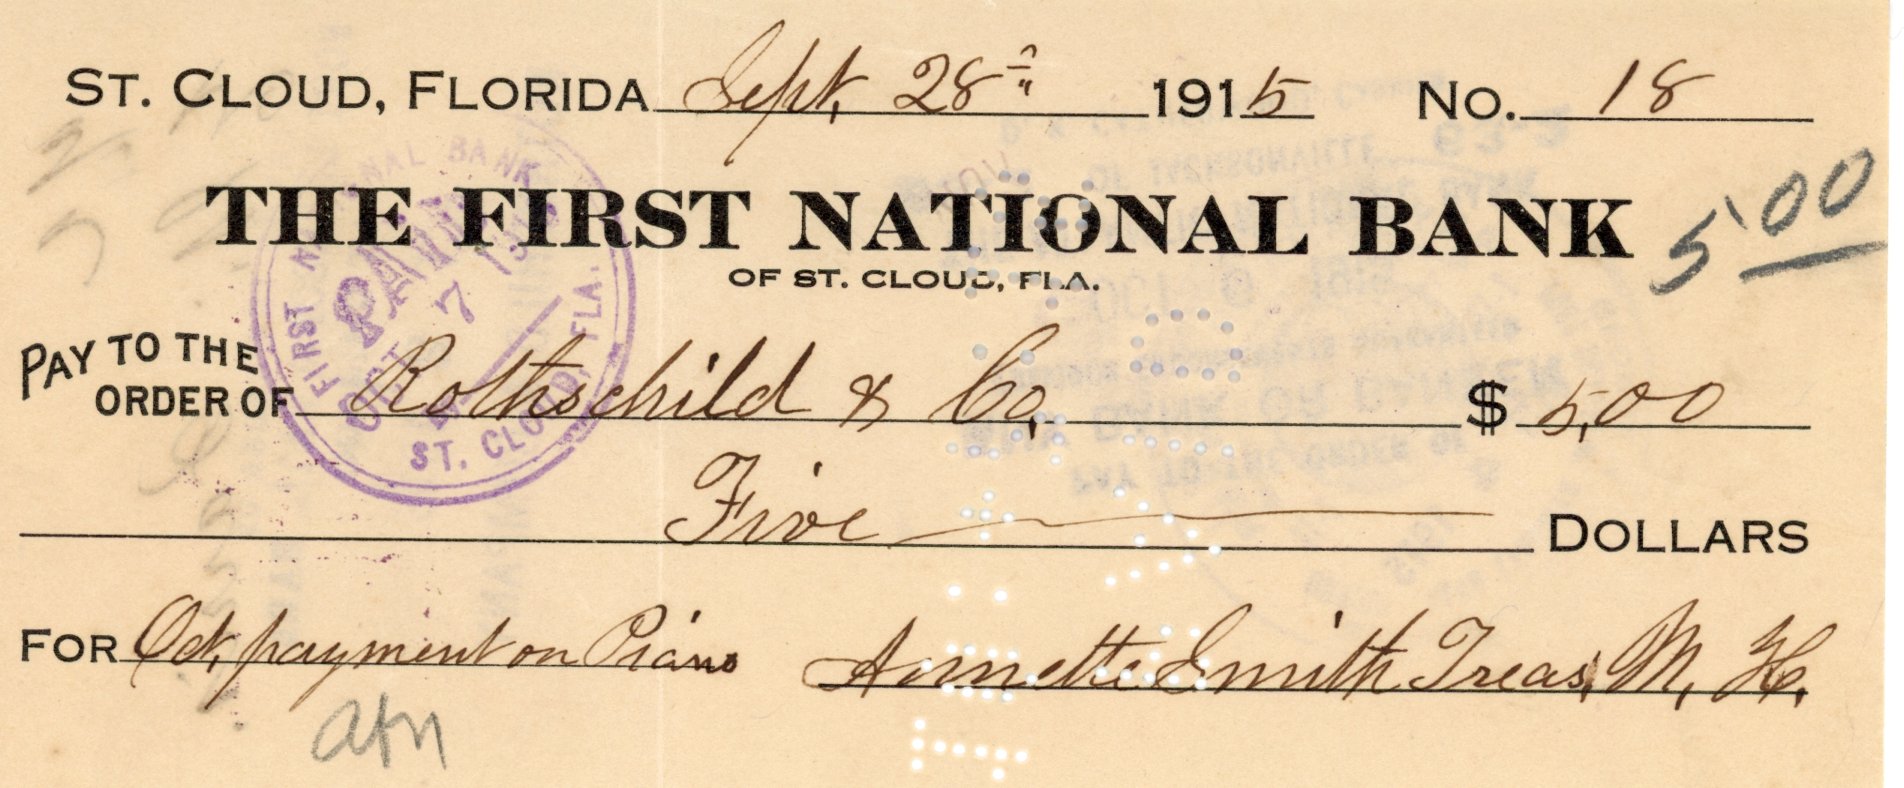 ST. CLOUD, FLORIDA Sept. 28" 1915 No. 18
THE FIRST NATIONAL BANK
5.00
OF ST. CLOUD, FLA.
FIRST NATIONAL BANK
PAID
OCT 7 1915
ST. CLOUD, FLA.
PAY TO THE
ORDER OF Rothschild & Co. $ 5.00
Five DOLLARS
FOR Oct. payment on Piano Annette Smith Treas. M. H.